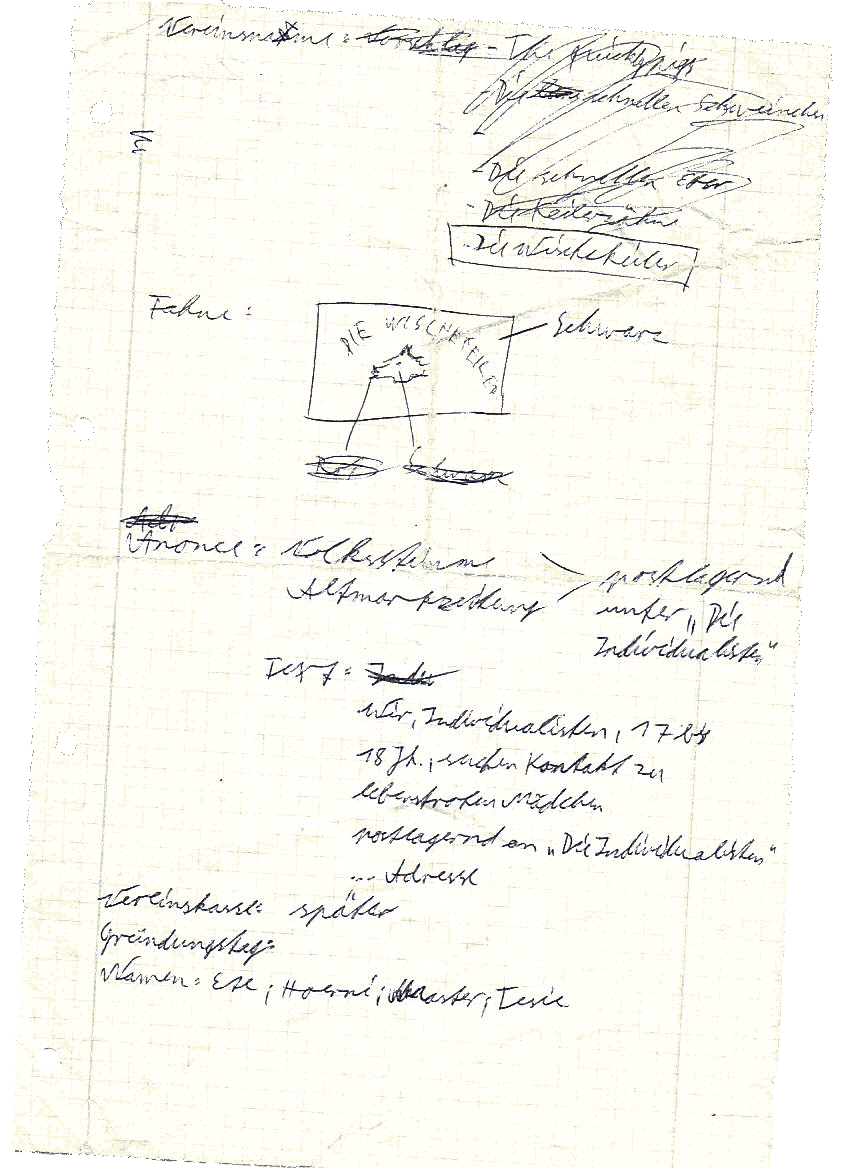 Vereinsname = Vorschlag - The Quickpigs
- Die schnellen Schweinchen
-
- Die schnellen Eber
- Die Keilerzähne
- Die Wischekeiler
Fahne :
DIE WISCHEKEILER
Schwarz
Rot Schwarz
Anonce = Volksstimme
Altmarkzeitung
postlagernd
unter „Die
Individualisten“
Text = Indi
Wir, Individualisten, 17 bis
18 Jh., suchen Kontakt zu
lebensfrohen Mädchen
postlagernd an „Die Individualisten“
... Adresse
Vereinskasse = später
Gründungstag =
Namen = Ete ; Hoerni ; Master ; Tesie